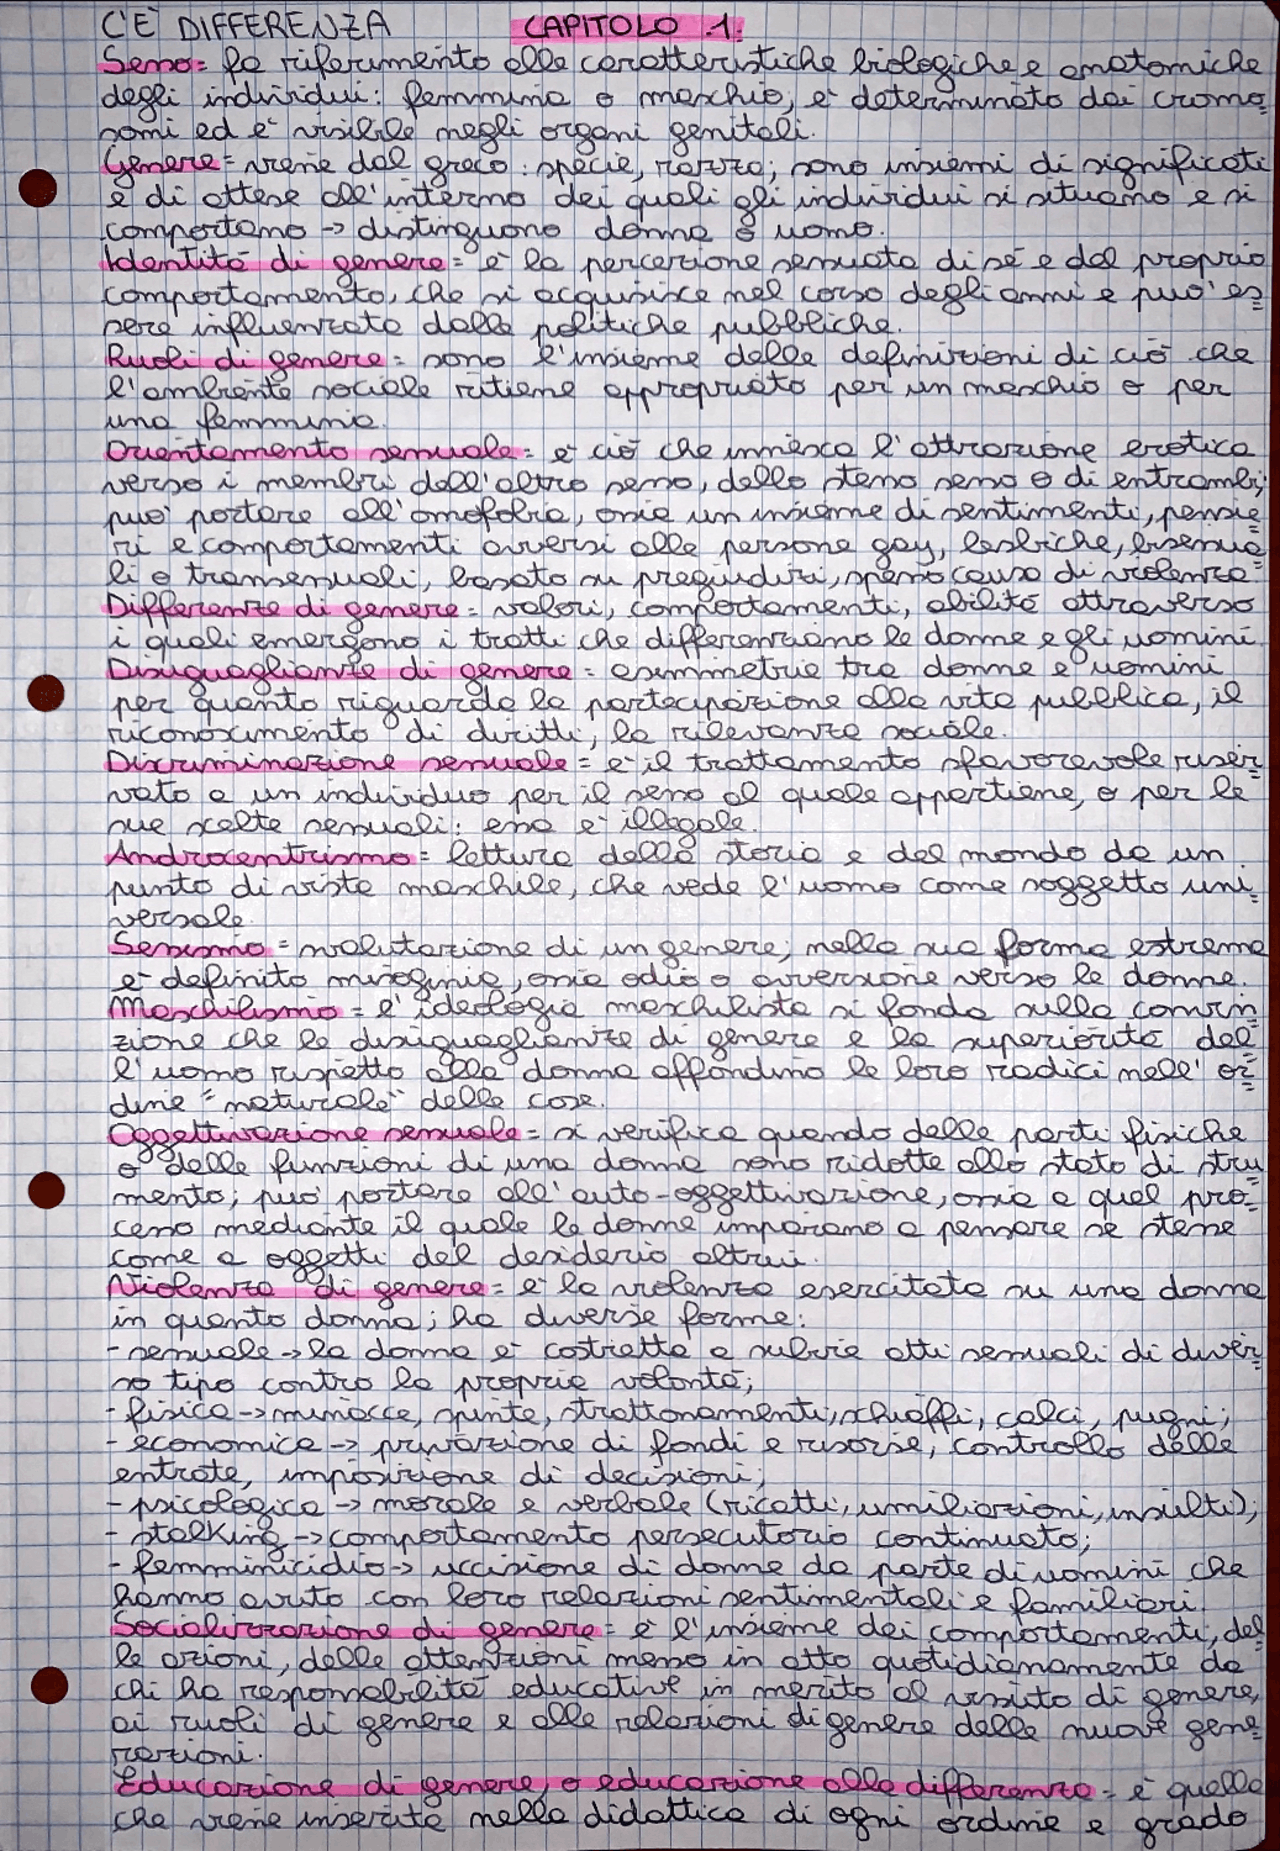 C'È DIFFERENZA CAPITOLO 1:
Sesso= fa riferimento alle caratteristiche biologiche e anatomiche
degli individui: femmina o maschio, è determinato dai cromo=
somi ed è visibile negli organi genitali.
Genere= viene dal greco: specie, razza; sono insiemi di significati
e di attese all'interno dei quali gli individui si situano e si
comportano -> distinguono donna o uomo.
Identità di genere= è la percezione sessuata di sé e del proprio
comportamento, che si acquisisce nel corso degli anni e può es=
sere influenzata dalle politiche pubbliche.
Ruoli di genere= sono l'insieme delle definizioni di ciò che
l'ambiente sociale ritiene appropriato per un maschio o per
una femmina.
Orientamento sessuale= è ciò che innesca l'attrazione erotica
verso i membri dell'altro sesso, dello stesso sesso o di entrambi;
può portare all'omofobia, ossia un insieme di sentimenti, pensie=
ri e comportamenti avversi alle persone gay, lesbiche, bisessua
li o transessuali, basato su pregiudizi, spesso causa di violenza.
Differenze di genere= valori, comportamenti, abilità attraverso
i quali emergono i tratti che differenziano le donne e gli uomini.
Disuguaglianze di genere= asimmetrie tra donne e uomini
per quanto riguarda la partecipazione alla vita pubblica, il
riconoscimento di diritti, la rilevanza sociale.
Discriminazione sessuale= è il trattamento sfavorevole riser=
vato a un individuo per il sesso al quale appartiene, o per le
sue scelte sessuali: essa è illegale.
Androcentrismo= lettura della storia e del mondo da un
punto di vista maschile, che vede l'uomo come soggetto uni=
versale.
Sessismo= svalutazione di un genere; nella sua forma estrema
è definito misoginia, ossia odio o avversione verso le donne.
Maschilismo= l'ideologia maschilista si fonda sulla convin=
zione che le disuguaglianze di genere e la superiorità del=
l'uomo rispetto alla donna affondino le loro radici nell'or=
dine "naturale" delle cose.
Oggettivazione sessuale= si verifica quando delle parti fisiche
o delle funzioni di una donna sono ridotte allo stato di stru
mento; può portare all'auto-oggettivazione, ossia a quel pro=
cesso mediante il quale le donne imparano a pensare se stesse
come a oggetti del desiderio altrui.
Violenza di genere= è la violenza esercitata su una donna
in quanto donna; ha diverse forme:
- sessuale -> la donna è costretta a subire atti sessuali di diver=
so tipo contro la propria volontà;
- fisica -> minacce, spinte, strattonamenti, schiaffi, calci, pugni;
- economica -> privazione di fondi e risorse, controllo delle
entrate, imposizione di decisioni;
- psicologica -> morale e verbale (ricatti, umiliazioni, insulti);
- stalking -> comportamento persecutorio continuato;
- femminicidio -> uccisione di donne da parte di uomini che
hanno avuto con loro relazioni sentimentali e familiari.
Socializzazione di genere= è l'insieme dei comportamenti, del=
le azioni, delle attenzioni messo in atto quotidianamente da
chi ha responsabilità educative in merito al vissuto di genere,
ai ruoli di genere e alle relazioni di genere delle nuove gene=
razioni.
Educazione di genere, o educazione alla differenza= è quella
che viene inserita nella didattica di ogni ordine e grado